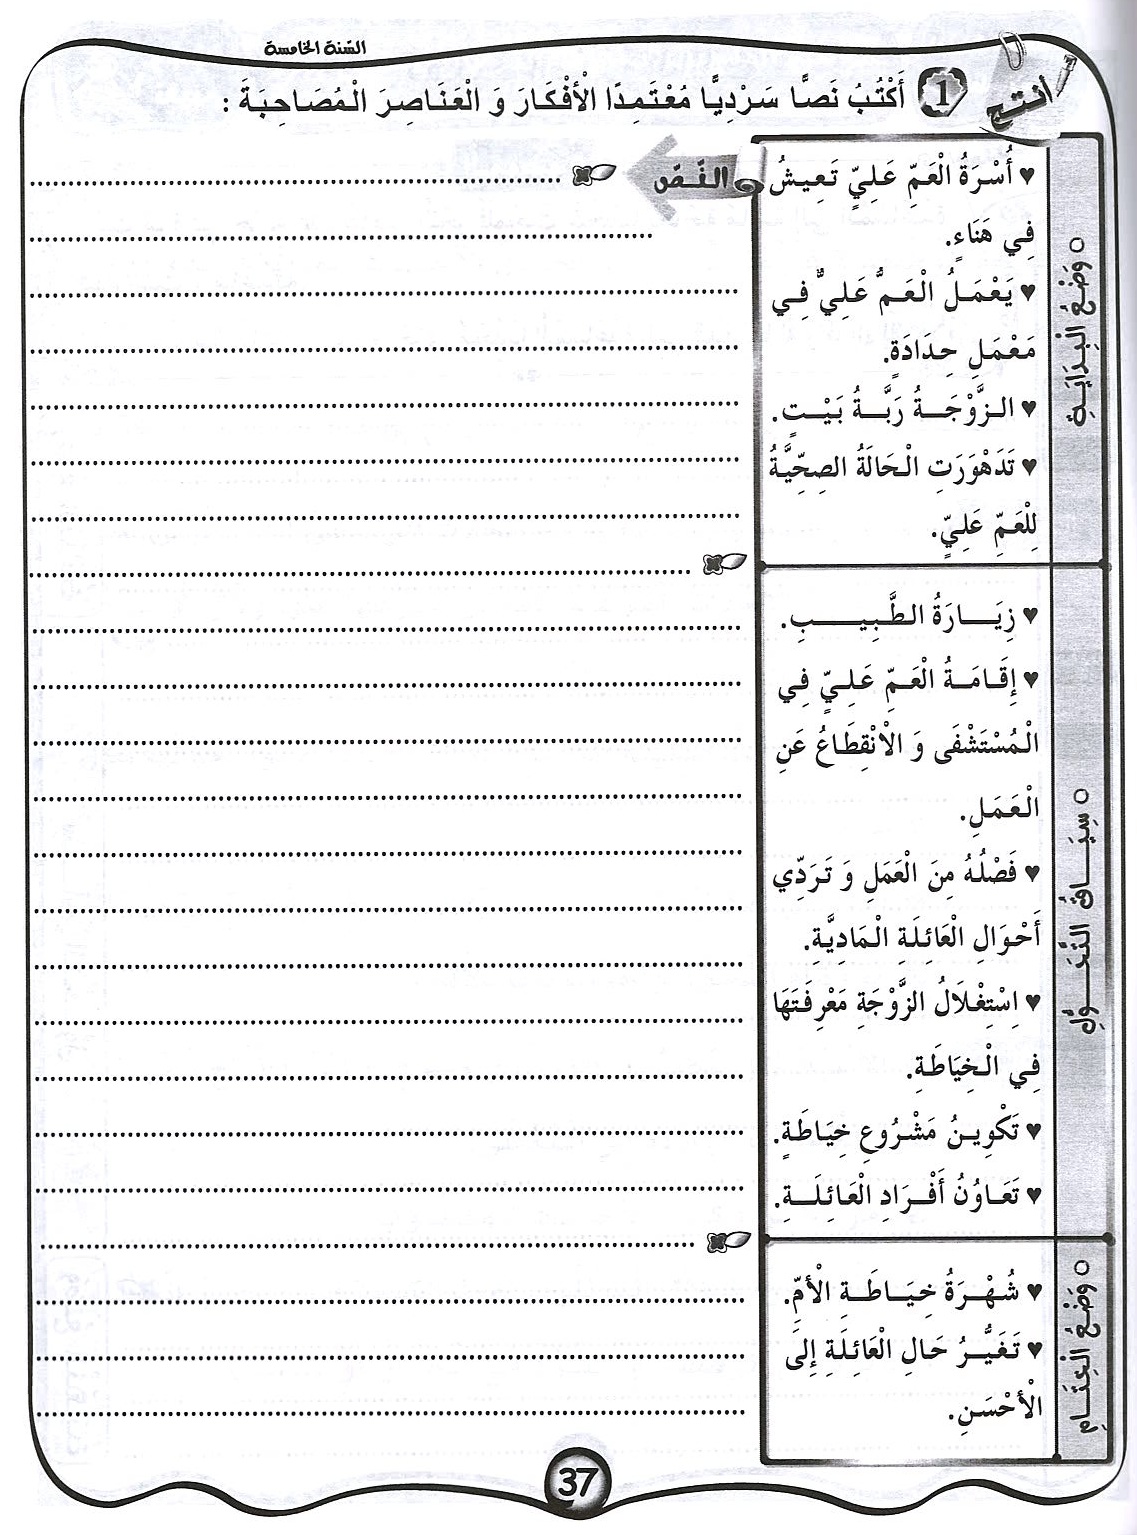 السّنة الخامسة
أنتج
1 أَكْتُبُ نَصًّا سَرْدِيًّا مُعْتَمِدًا الْأَفْكَارَ وَ الْعَنَاصِرَ الْمُصَاحِبَةَ :
النَّصّ
○ وَضْعُ الْبِدَايَةِ
♥ أُسْرَةُ الْعَمِّ عَلِيٍّ تَعِيشُ
فِي هَنَاءٍ.
♥ يَعْمَلُ الْعَمُّ عَلِيٌّ فِي
مَعْمَلِ حِدَادَةٍ.
♥ الزَّوْجَةُ رَبَّةُ بَيْتٍ.
♥ تَدَهْوَرَتِ الْحَالَةُ الصِحِّيَّةُ
لِلْعَمِّ عَلِيٍّ.
○ سِيَاقُ التَّحَوُّلِ
♥ زِيَارَةُ الطَّبِيبِ.
♥ إِقَامَةُ الْعَمِّ عَلِيٍّ فِي
الْمُسْتَشْفَى وَ الْاِنْقِطَاعُ عَنِ
الْعَمَلِ.
♥ فَصْلُهُ مِنَ الْعَمَلِ وَ تَرَدِّي
أَحْوَالِ الْعَائِلَةِ الْمَادِيَّةِ.
♥ اِسْتِغْلَالُ الزَّوْجَةِ مَعْرِفَتَهَا
فِي الْخِيَاطَةِ.
♥ تَكْوِينُ مَشْرُوعِ خِيَاطَةٍ.
♥ تَعَاوُنُ أَفْرَادِ الْعَائِلَةِ.
○ وَضْعُ الْخِتَامِ
♥ شُهْرَةُ خِيَاطَةِ الْأُمِّ.
♥ تَغَيُّرُ حَالِ الْعَائِلَةِ إِلَى
الْأَحْسَنِ.
37